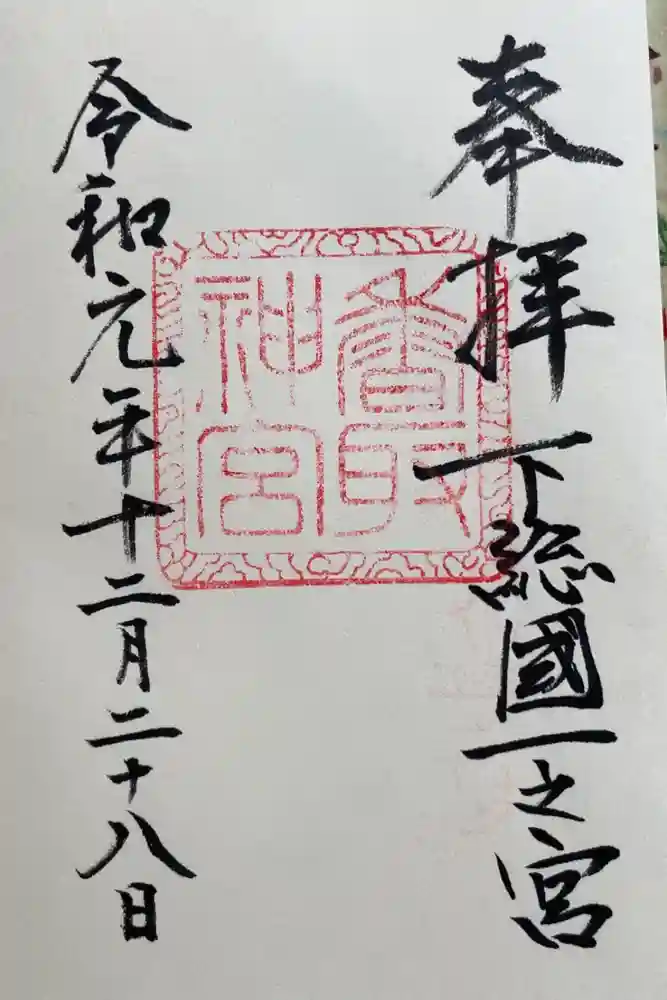 奉拝 下総國一之宮
香取
神宮
令和元年十二月二十八日